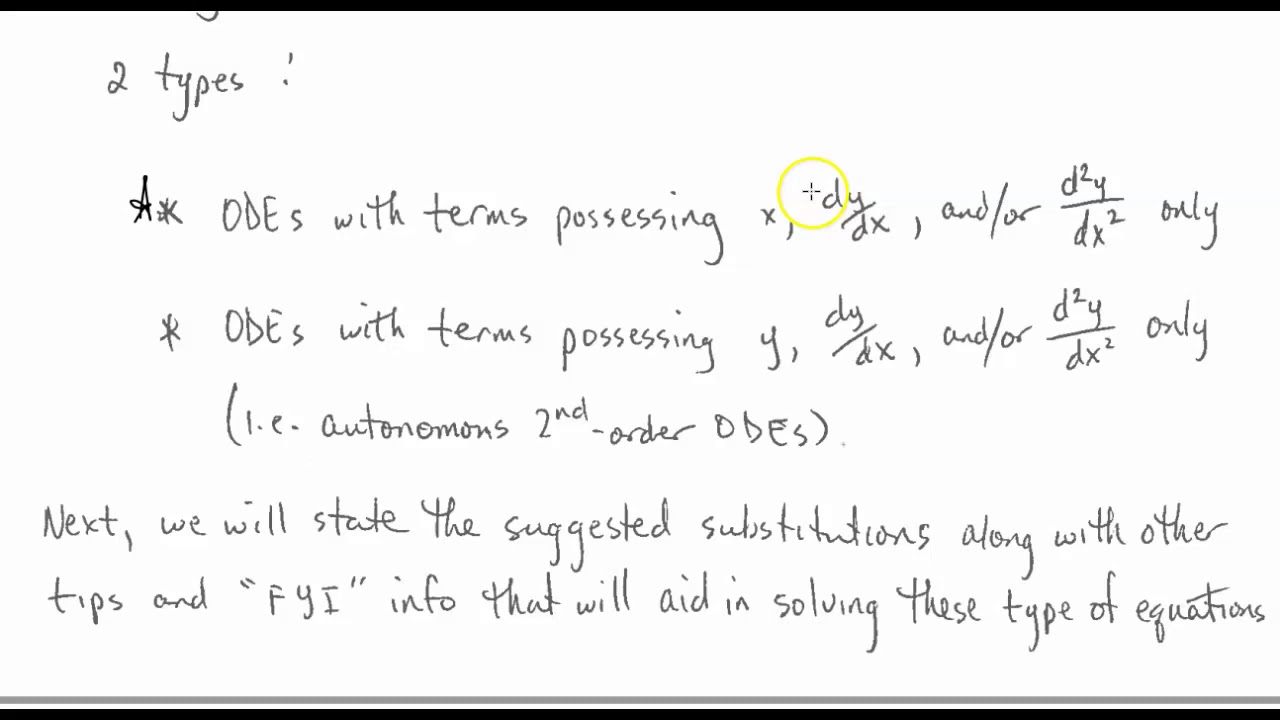 2 types :
A* ODEs with terms possessing x, dy/dx, and/or d²y/dx² only
* ODEs with terms possessing y, dy/dx, and/or d²y/dx² only
(i.e. autonomous 2nd-order ODEs).
Next, we will state the suggested substitutions along with other
tips and "FYI" info that will aid in solving these type of equations